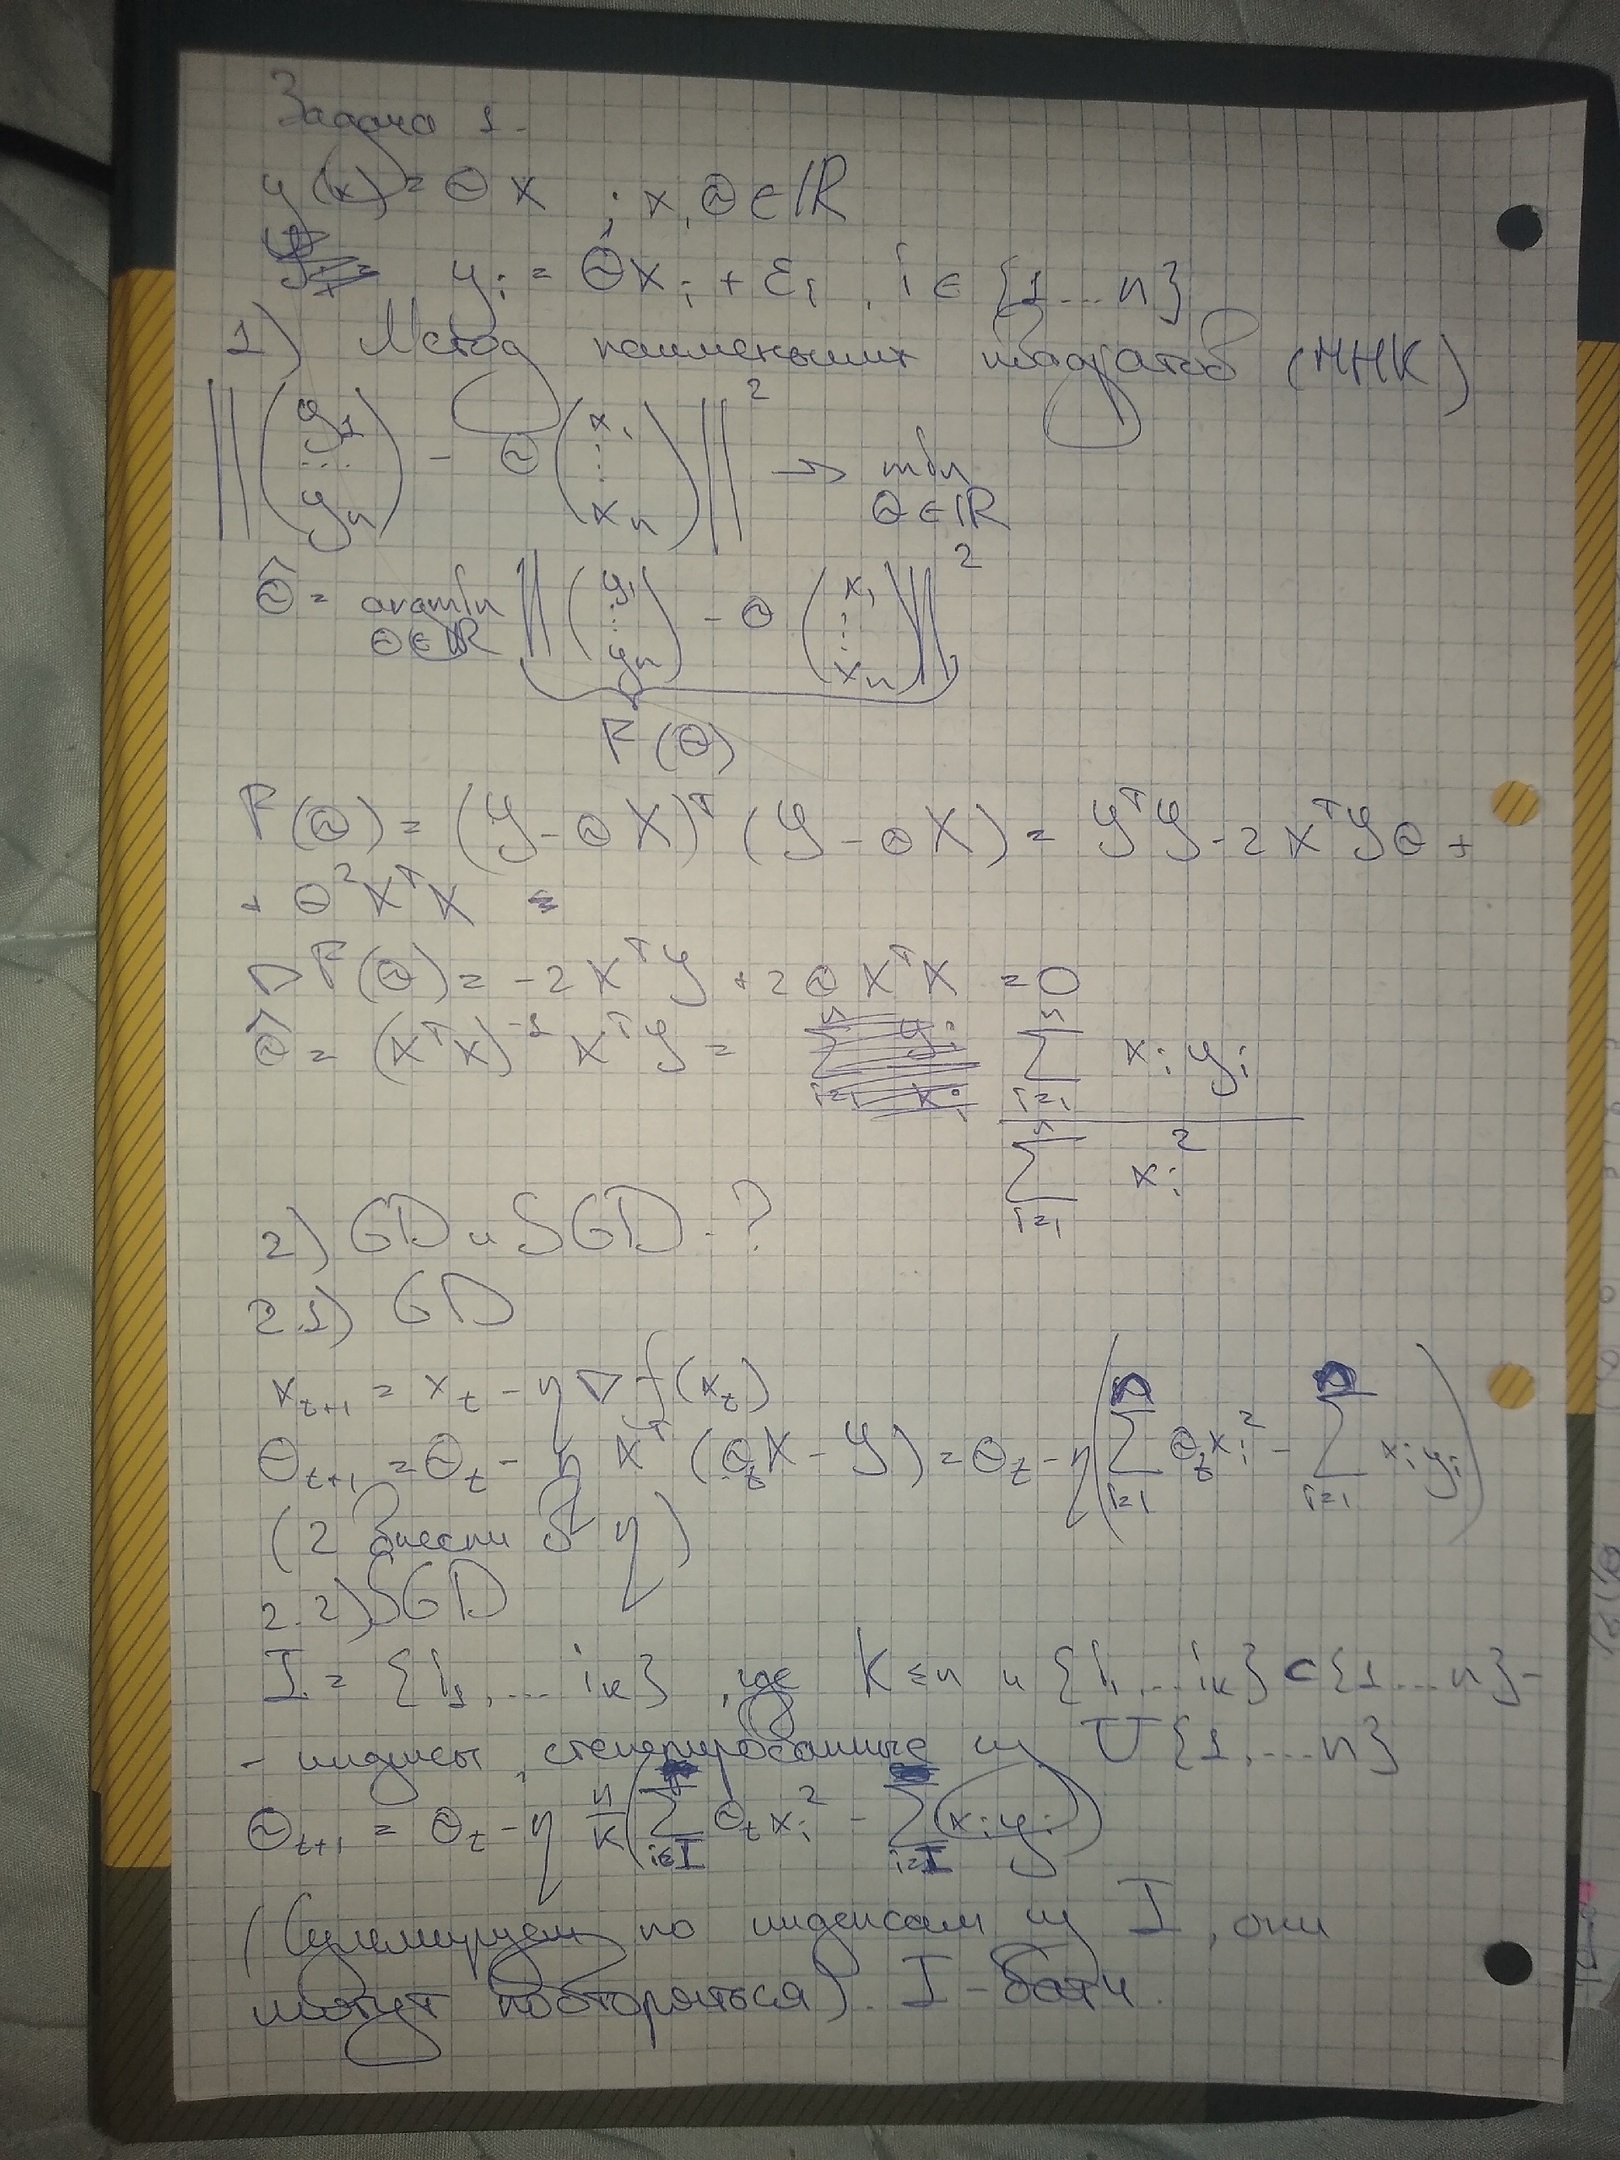 Задача 1.
y(x) = θx ; x, θ ∈ ℝ
y_i = θx_i + ε_i , i ∈ {1 ... n}
1) Метод наименьших квадратов (МНК)
‖(y_1 ... y_n) - θ(x_1 ⋮ x_n)‖² → min θ∈ℝ
θ̂ = argmin θ∈ℝ ‖(y_1 ⋮ y_n) - θ(x_1 ⋮ x_n)‖²
F(θ)
F(θ) = (Y - θX)^T (Y - θX) = Y^T Y - 2X^T Yθ +
+ θ²X^T X
∇F(θ) = -2X^T Y + 2θX^T X = 0
θ̂ = (X^T X)^{-1} X^T Y = ∑_{i=1}^n x_i y_i / ∑_{i=1}^n x_i²
2) GD и SGD - ?
2.1) GD
x_{t+1} = x_t - η∇f(x_t)
θ_{t+1} = θ_t - η X^T (θ_t X - Y) = θ_t - η(∑_{i=1}^n θ_t x_i² - ∑_{i=1}^n x_i y_i)
(2 внесли в η)
2.2) SGD
I = {i_1, ... i_k} , где k ≤ n и {i_1 ... i_k} ⊂ {1 ... n} -
- индексы, сгенерированные из U{1, ... n}
θ_{t+1} = θ_t - η n/k (∑_{i∈I} θ_t x_i² - ∑_{i=I} (x_i y_i))
(Суммируем по индексам из I, они
могут повторяться). I - батч.